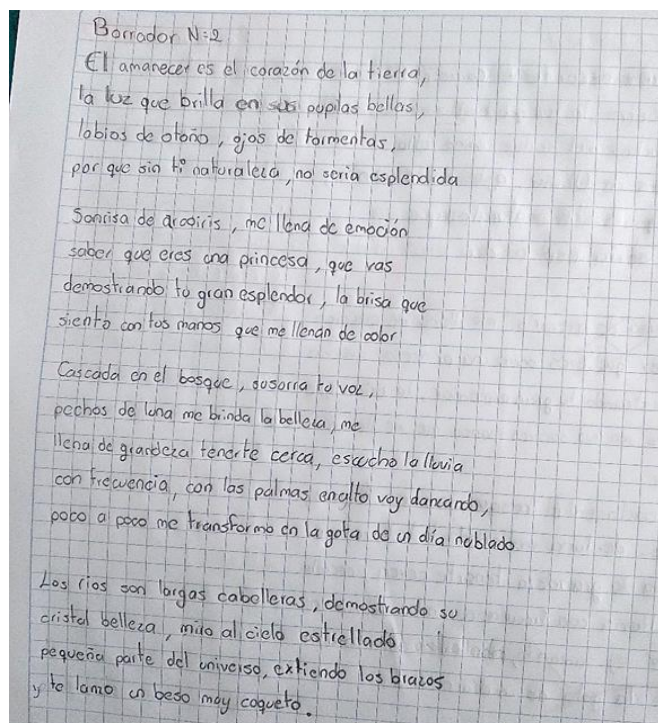 Borrador N:2
El amanecer es el corazón de la tierra,
la luz que brilla en sus pupilas bellas,
labios de otoño, ojos de tormentas,
por que sin ti naturaleza, no seria esplendida
Sonrisa de arcoiris, me llena de emoción
saber que eres una princesa, que vas
demostrando tu gran esplendor, la brisa que
siento con tus manos que me llenan de color
Cascada en el bosque, susurra tu voz,
pechos de luna me brinda la belleza, me
llena de grandeza tenerte cerca, escucho la lluvia
con frecuencia, con las palmas en alto voy danzando,
poco a poco me transformo en la gota de un día nublado
Los rios son largas cabelleras, demostrando su
cristal belleza, miro al cielo estrellado
pequeña parte del universo, extiendo los brazos
y te lanzo un beso muy coqueto.